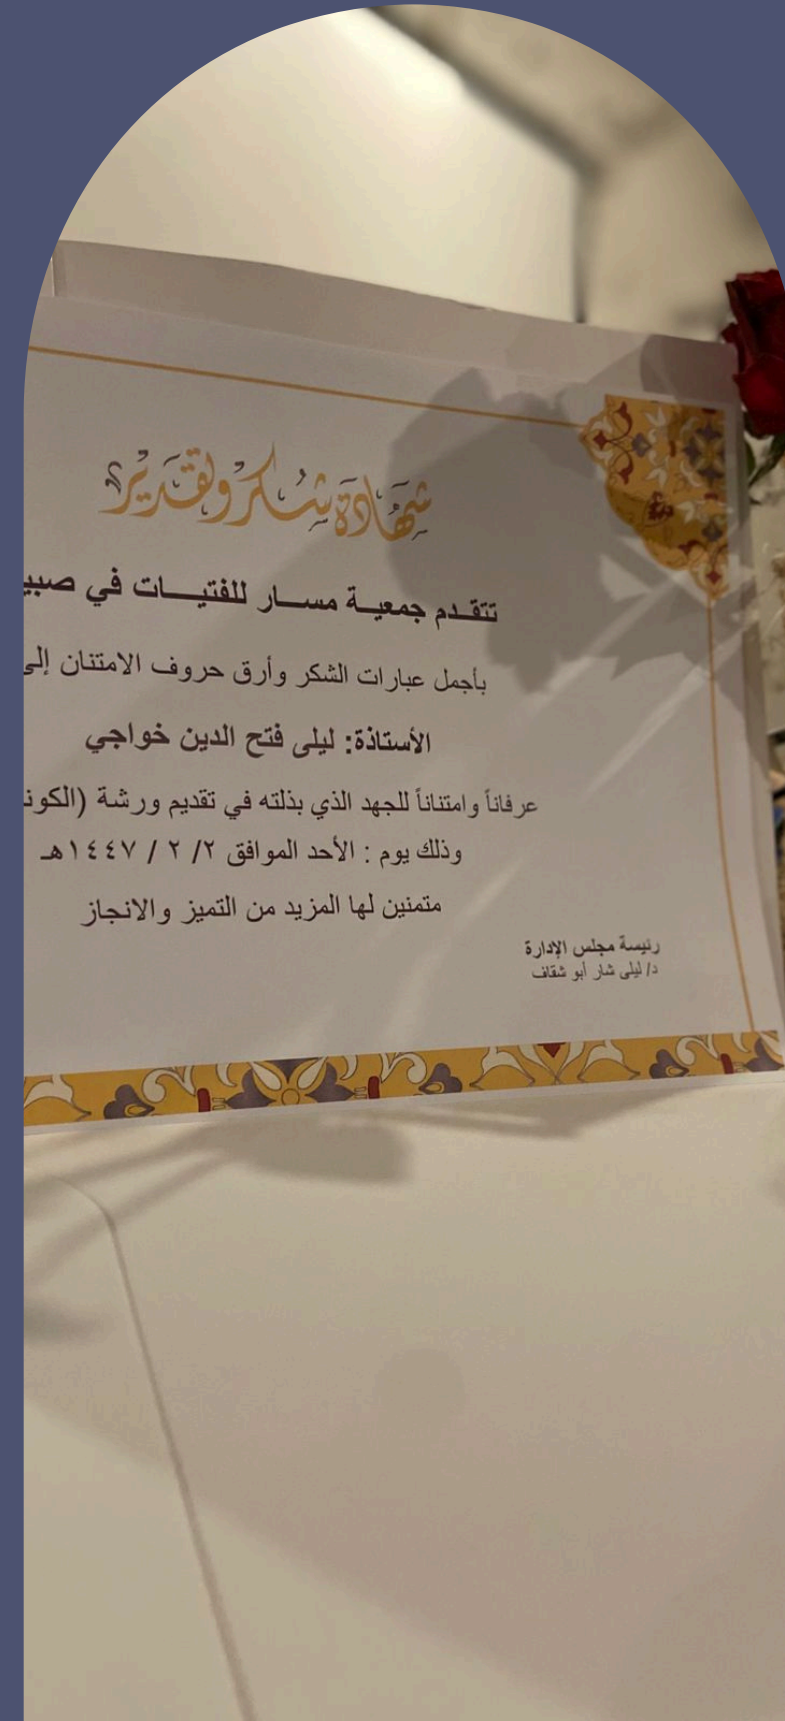 شهادة شكر وتقدير
تتقدم جمعية مسار للفتيات في صبي
بأجمل عبارات الشكر وأرق حروف الامتنان إلى
الأستاذة: ليلى فتح الدين خواجي
عرفاناً وامتناناً للجهد الذي بذلته في تقديم ورشة (الكون
وذلك يوم : الأحد الموافق ٢/ ٢ / ١٤٤٧هـ
متمنين لها المزيد من التميز والانجاز
رئيسة مجلس الإدارة
د/ ليلى شار أبو شقاف